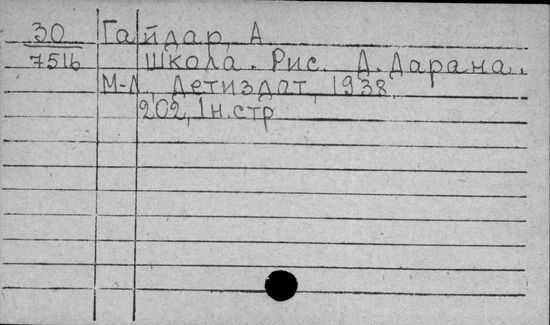 30 Гайдар, А
7516 Школа. Рис. Д. Дарана.
М-Л, Детиздат, 1938,
202, 1н.стр